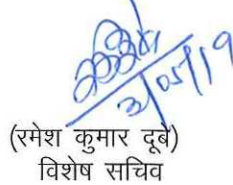 3/05/19
(रमेश कुमार दूबे)
विशेष सचिव